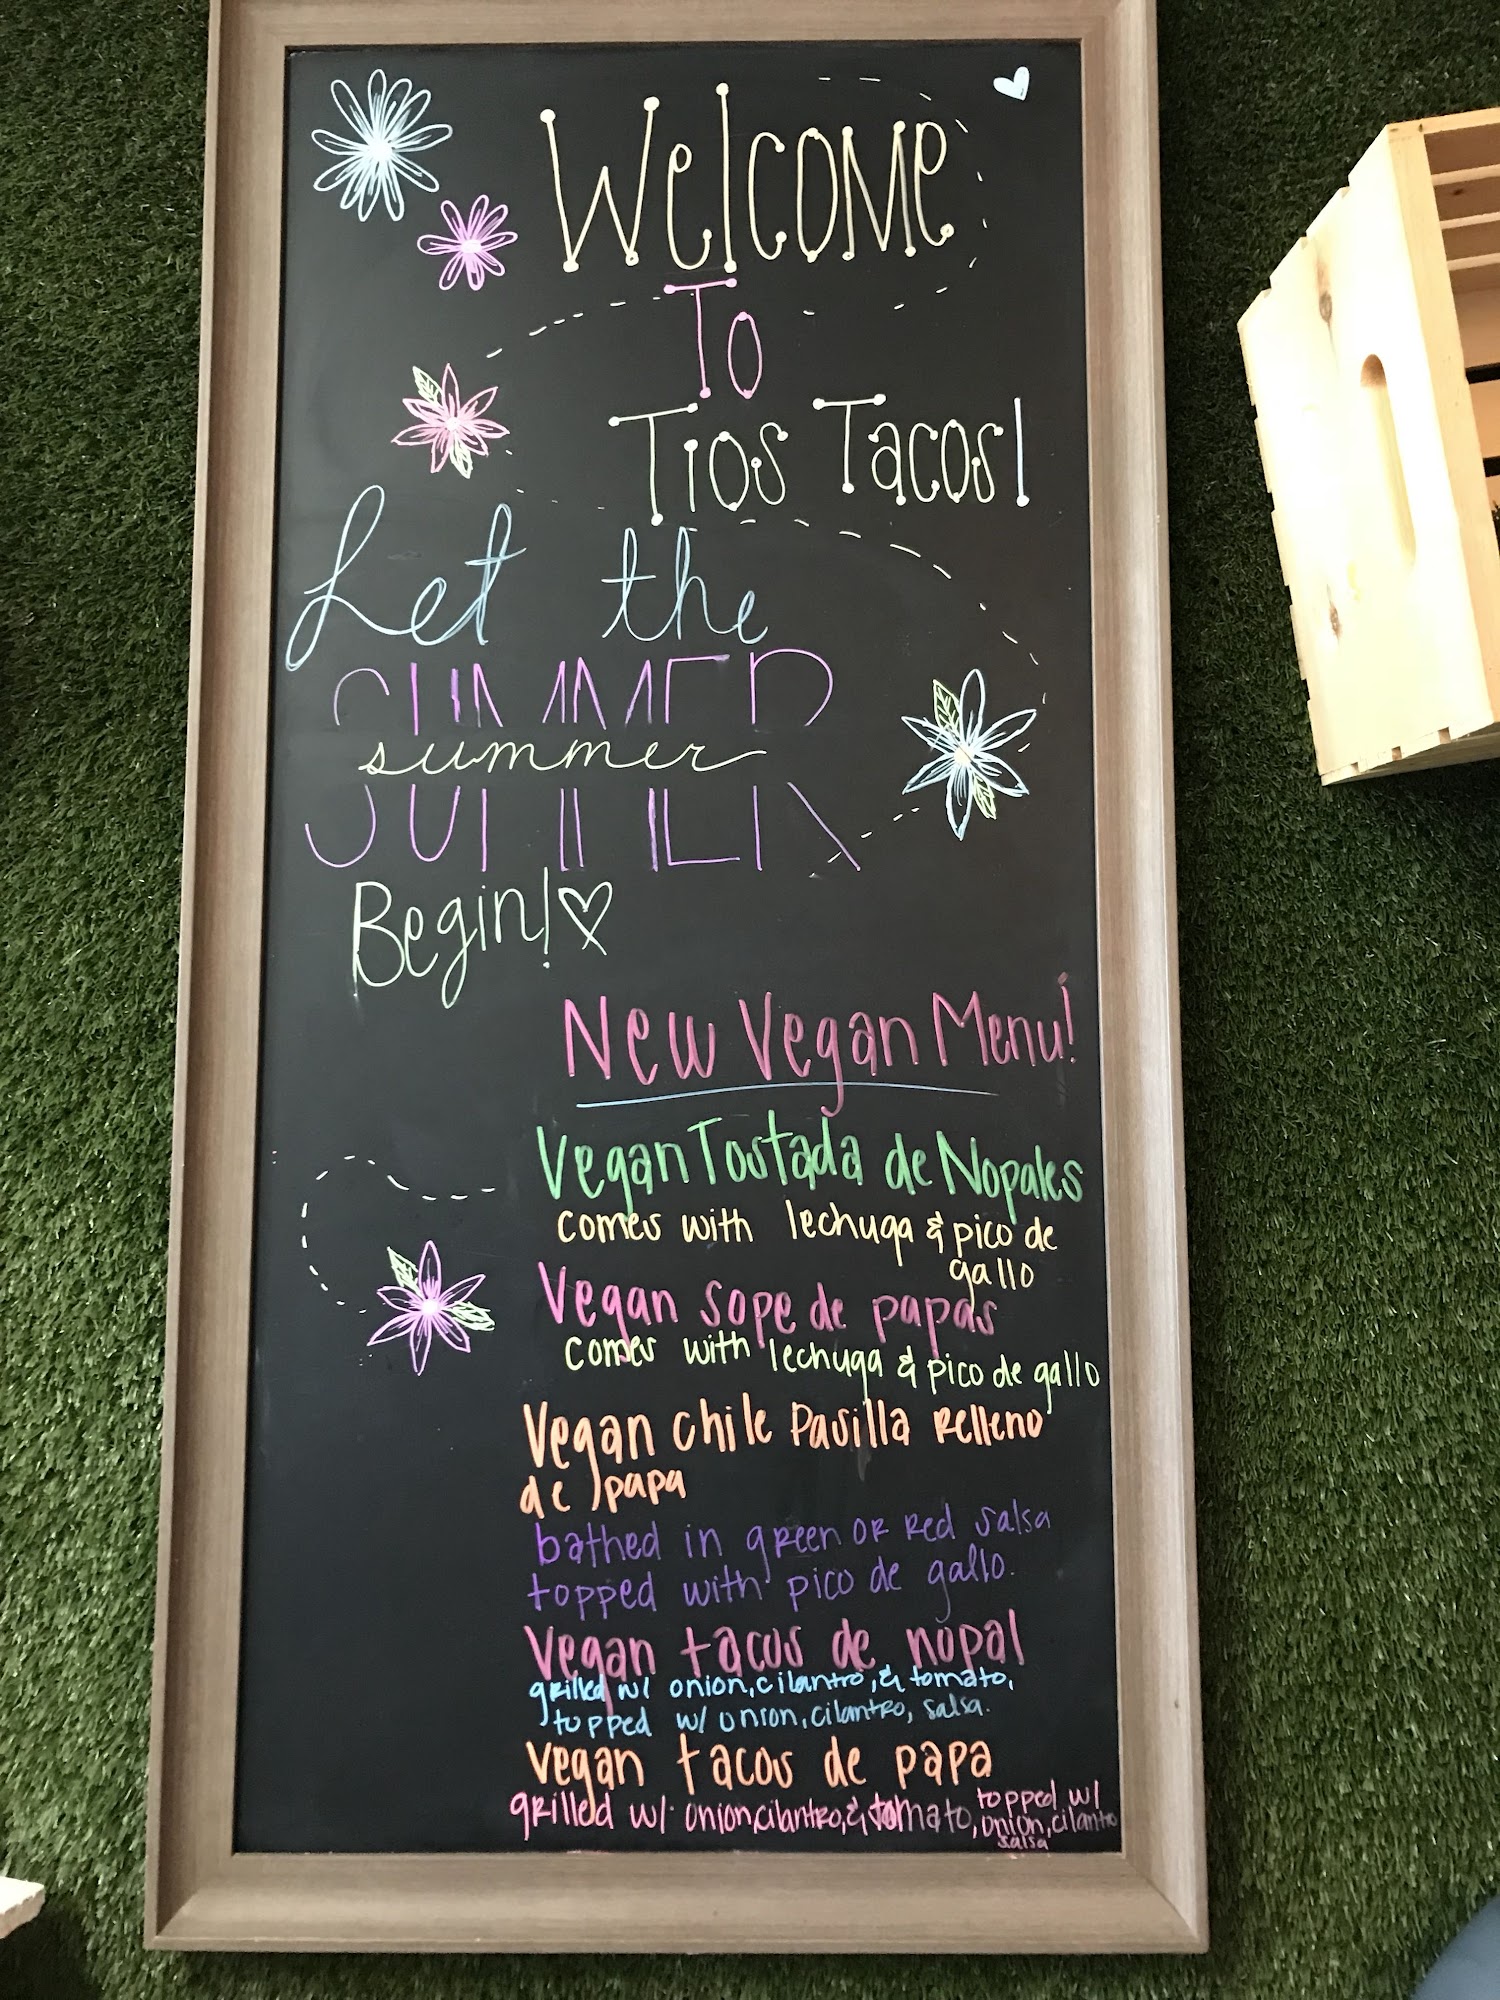 Welcome
To
Tios Tacos!
Let the
SUMMER
summer
Begin!
New Vegan Menu!
Vegan Tostada de Nopales
comes with lechuga & pico de
gallo
Vegan Sope de papas
comes with lechuga & pico de gallo
Vegan chile Pasilla Relleno
de papa
bathed in green OR Red salsa
topped with pico de gallo.
Vegan tacos de nopal
grilled w/ onion, cilantro, & tomato,
topped w/ onion, cilantro, salsa.
Vegan tacos de papa
grilled w/ onion, cilantro, & tomato, topped w/
onion, cilantro
salsa